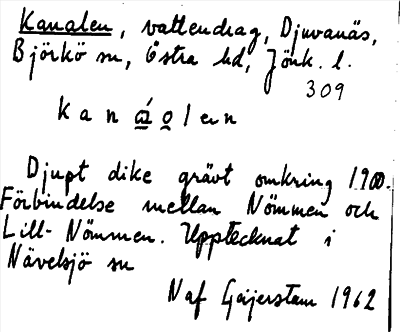 Kanalen, vattendrag, Djuvanäs,
Björkö sn, Östra hd, Jönk. l.
309
Djupt dike grävt omkring 1900.
Förbindelse mellan Nömmen och
Lill-Nömmen. Upptecknat i
Nävelsjö sn
Naf Geijerstam 1962